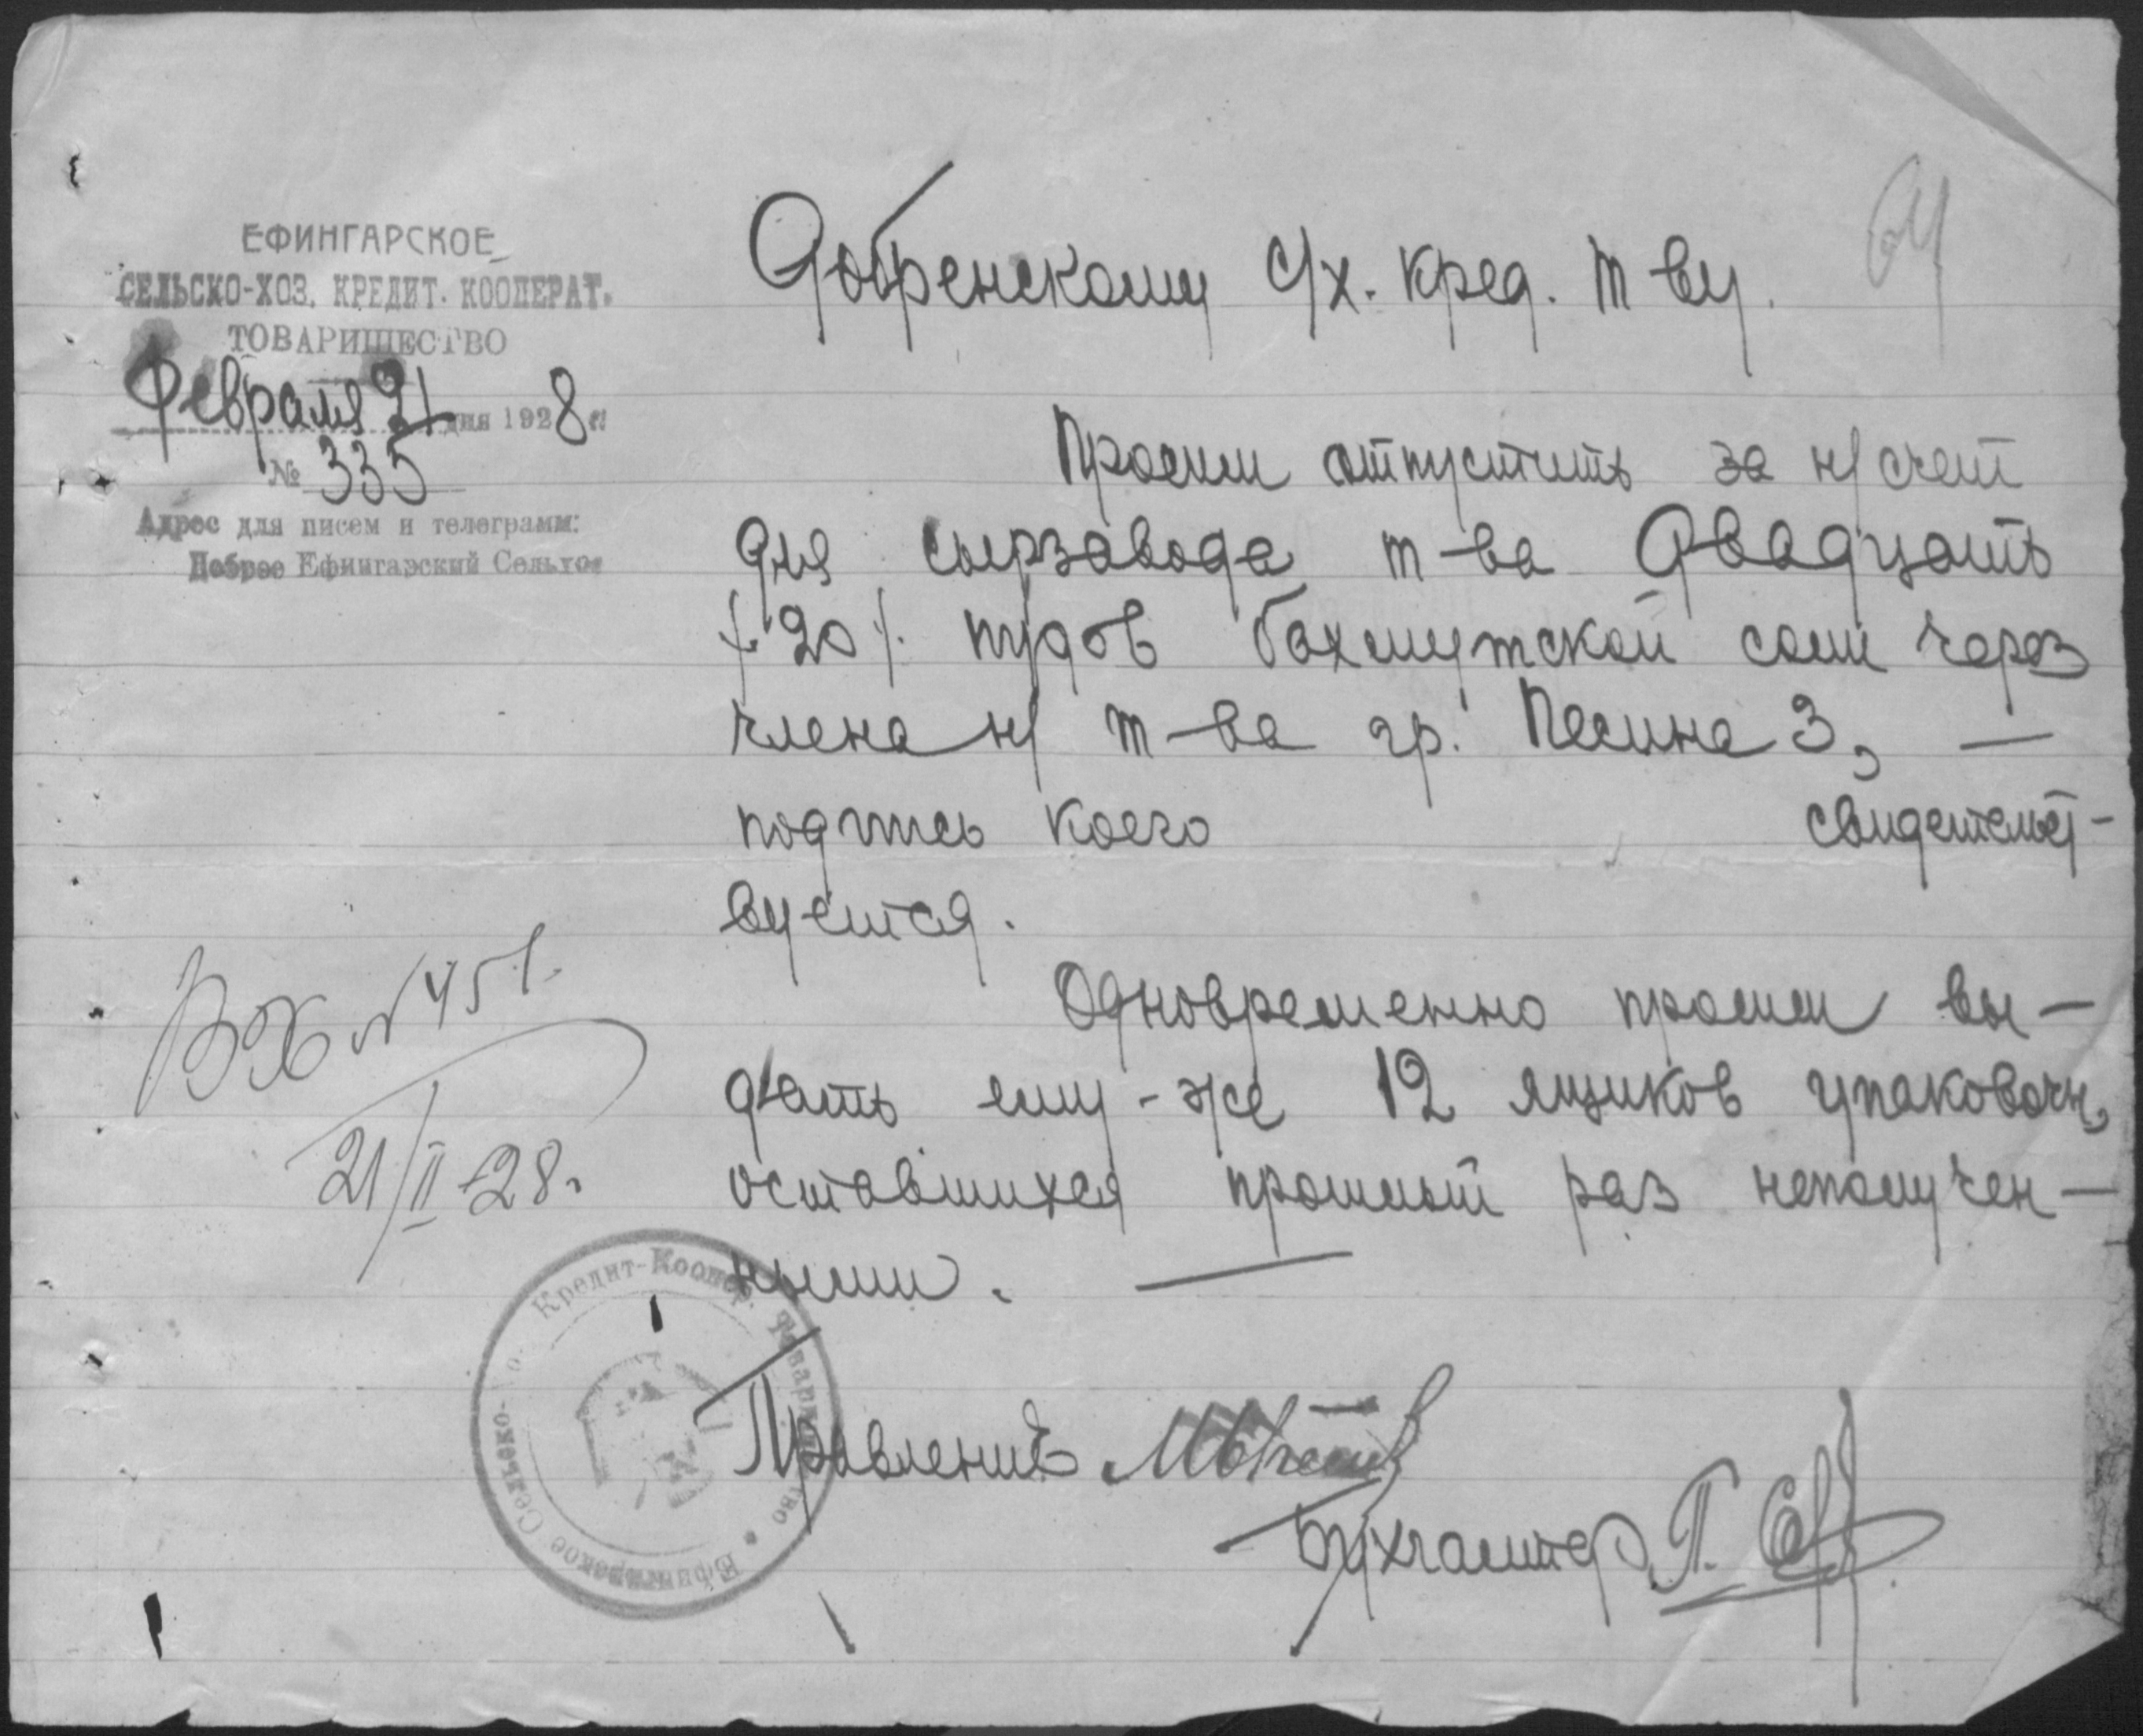 ЕФИНГАРСКОЕ
СЕЛЬСКО-ХОЗ. КРЕДИТ. КООПЕРАТ.
ТОВАРИЩЕСТВО
Февраля 21 дня 1928 г.
№ 335
Адрес для писем и телеграмм:
Доброе Ефингарский Сельхоз
64
Добренскому с/х. кред. т-ву.
Просим отпустить за н/счет
для сырзавода т-ва Двадцать
/20/ пудов бахмутской соли через
члена н/ т-ва гр. Песина З, —
подпись коего свидетельст-
вуется.
Одновременно просим вы-
дать ему-же 12 ящиков упаковочн,
оставшихся прошлый раз неполучен-
ными. —
ВХ № 451.
21/II-28.
Кредит-Коопер. Товарищество • Ефингарское Сельско-
Правление
Бухгалтер П.